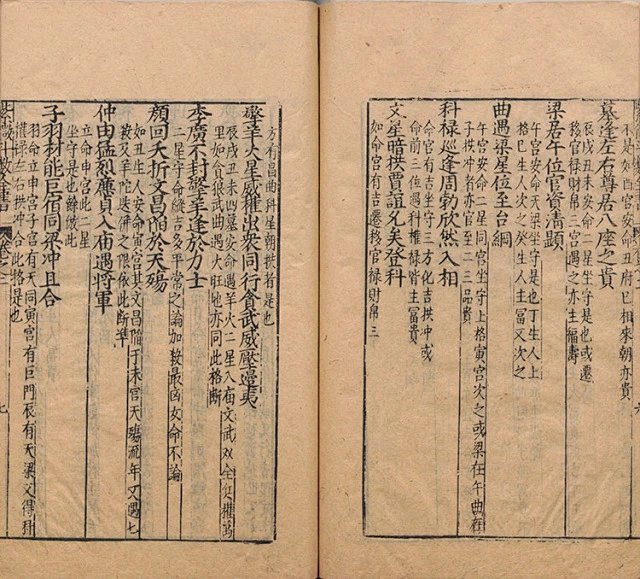 不是如酉宮安命丑府巳相來朝亦貴
墓逢左右尊居八座之貴
辰戌丑未安命二星坐守是也或遷
移官祿財帛三宮遇之亦主福壽
梁居午位官資清顯
午宮安命天梁坐守是也丁生人上
格巳生人次之癸生人主富又次之
曲遇梁星位至台綱
午宮安命二星同宮坐守上格寅宮次之或梁在午曲在
子拱冲者亦官至二三品貴
科祿巡逢周勃欣然入相
命宮有吉坐守三方化吉拱冲或
命前三位遇科權祿皆主冨貴
文星暗拱賈誼允矣登科
如命宮有吉遷移官祿財帛三
方有昌曲科星朝拱者是也
擎羊火星威權出衆同行貪武威壓邊夷
辰戌丑未四墓安命遇羊火二星入庙文武双全兵權萬
里如貪狼武曲遇火旺地亦同此格断
李廣不封擎羊逢於力士
二星守命縱吉多平常之論加殺最凶女命不論
顏回夭折文昌陷於天殤
如丑生人安命寅宮其文昌陷于未宮天殤流年又遇七
殺及羊陀迭併之限依此斷準
仲由猛烈廉貞入庙遇將軍
立命申宮此二星
坐守是也餘倣此
子羽才能巨宿同梁冲且合
羽命立申宮子宮有天同寅宮有巨門辰有天梁又得科
權祿左右拱冲合此格是也
七